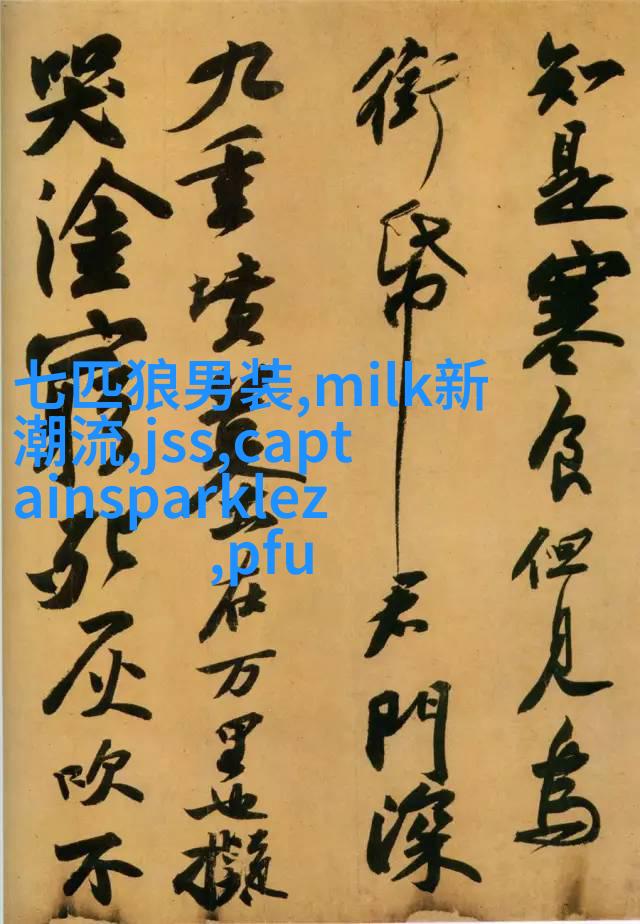 知是寒食但見烏
銜帋君門深
九重墳墓在万里也擬
哭塗窮死灰吹不
七匹狼男装,milk新
潮流,jss,capt
ainsparklez
,pfu